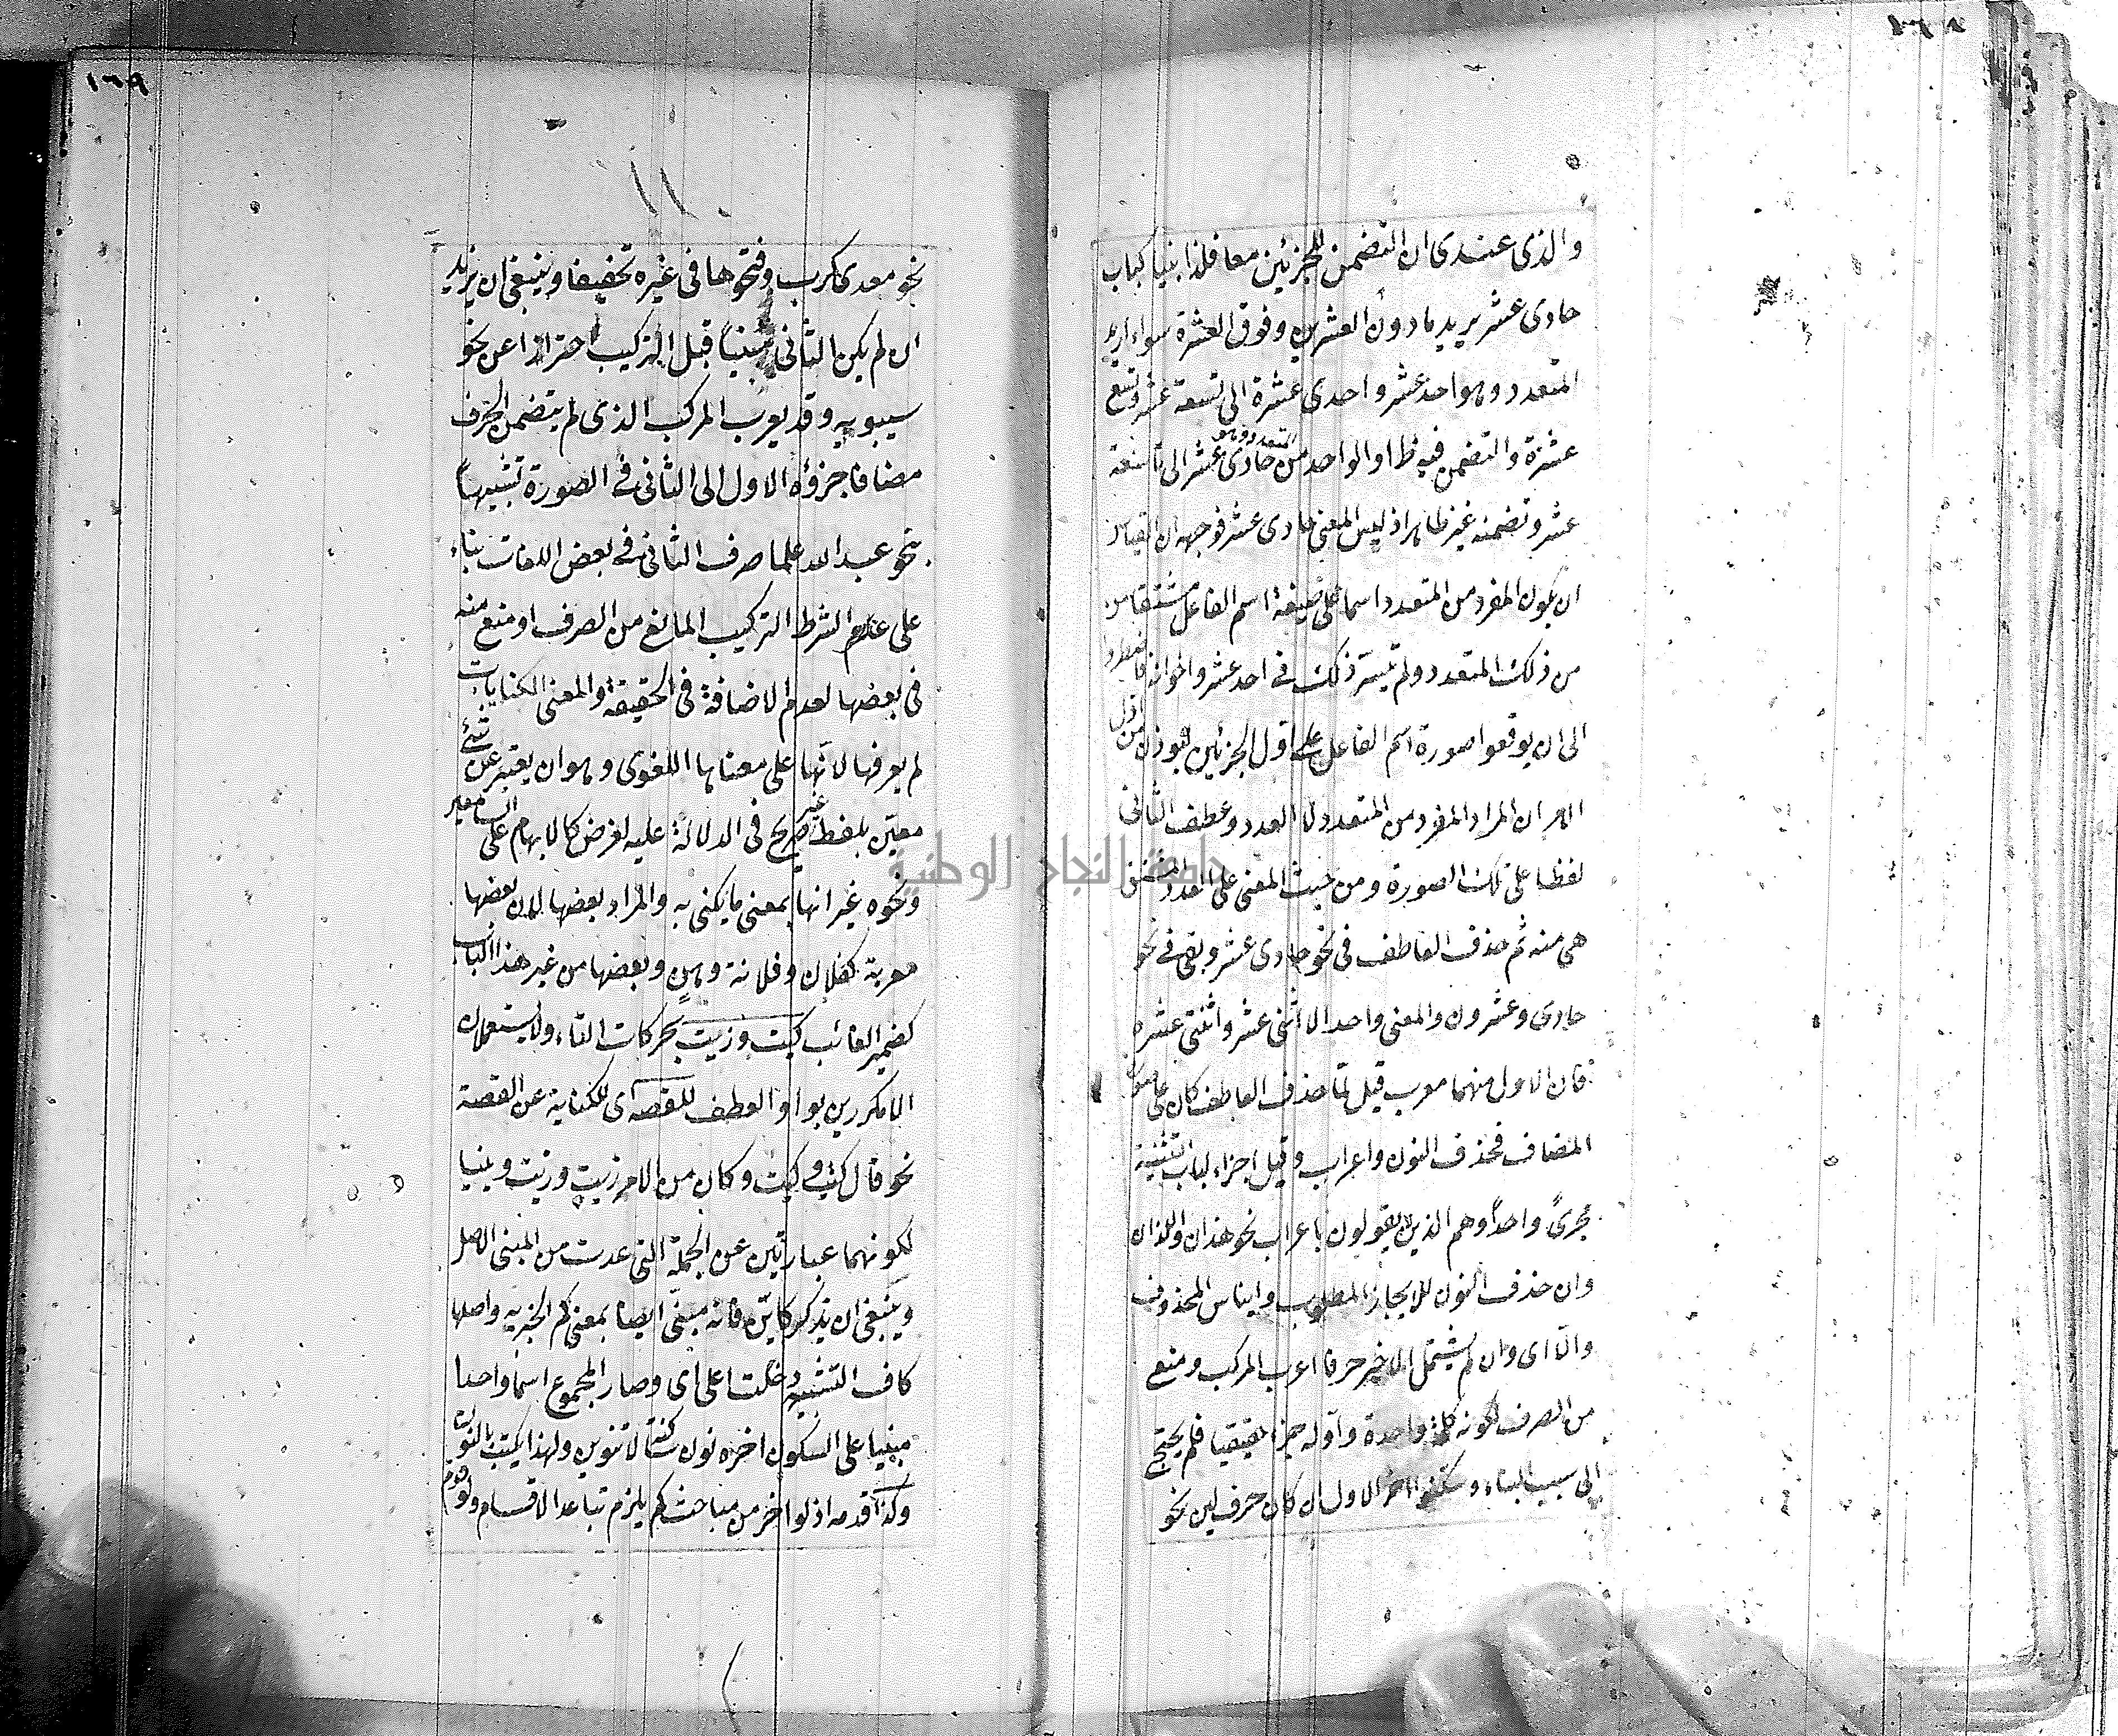 ١٦٨
والذى عندى ان التضمن للجزئين معا فلذا بنيا كباب
حادى عشر يريد مادون العشرين وفوق العشرة سواء اريد
المتعدد وهو احد عشر واحدى عشرة الى تسعة عشر وتسع
عشرة والتضمن فيه ظ او الواحد من المتعدد وهو حادى عشر الى تاسعة
عشر وتضمنه غير ظاهر اذ ليس المعنى حادى عشر فوجهه ان القياس
ان يكون المفرد من المتعدد اسما على صيغة اسم الفاعل مشتقا من
من ذلك المتعدد ولم يتيسر ذلك فى احد عشر واخواته فاضطروا
الى ان يوقعوا صورة اسم الفاعل على اول الجزئين ليؤذن من اول
الامر ان المراد المفرد من المتعدد لا العدد وعطف الثانى
لفظا على تلك الصورة ومن حيث المعنى على العدد المشتق
هى منه ثم حذف العاطف فى نحو حادى عشر وبقى فى نحو
حادى وعشرون والمعنى واحد الا اثنى عشر واثنتى عشرة
فان الاول منهما معرب قيل لما حذف العاطف كان على صورة
المضاف فحذف النون واعراب وقيل اجراء لباب التثنية
مجرىً واحدًا وهم الذين يقولون باعراب نحو هذان واللذان
وان حذف النون للايجاز المطلوب وايناس المحذوف
والا اى وان لم يشتمل الاخير حرفا اعرب المركب ومنع
من الصرف لكونه كلمة واحدة واوله جزء حقيقيا فلم يحتج
الى سبب البناء وسكنوا اخر الاول ان كان حرف لين نحو
١٦٩
١١٠
نحو معدى كرب وفتحوها فى غيره تخفيفا وينبغى ان يزيد
ان لم يكن الثانى مبنيًا قبل التركيب احترازا عن نحو
سيبويه وقد يعرب المركب الذى لم يتضمن الحرف
مضافا جزؤه الاول الى الثانى فى الصورة تشبيهًا
بنحو عبد الله علما صرف الثانى فى بعض اللغات بناء
على عدم الشرط التركيب المانع من الصرف او منع منه
فى بعضها لعدم الاضافة فى الحقيقة والمعنى الكنايات
لم يعرفها لانها على معناها اللغوى وهو ان يعبر عن شئ
معين بلفظ غير صريح فى الدلالة عليه لغرض كالابهام على السامعين
ونحوه غير انها بمعنى ما يكنى به والمراد بعضها لان بعضها
معربة كفلان وفلانة وهن وبعضها من غير هذا الباب
كضمير الغائب كيت وزيت بحركات التاء ولا يستعملان
الا مكررين بواو العطف للقصة اى للكناية عن القصة
نحو قال كيت وكيت وكان من الامر زيت وزيت وبنيا
لكونهما عبارتين عن الجملة التى عدت من المبنى الاصل
وينبغى ان يذكر كاين فانه مبنى ايضا بمعنى كم الخبريه واصلها
كاف التشبيه دخلت على اى وصار المجموع اسما واحدا
مبنيا على السكون اخره نون ساكنة لا تنوين ولهذا يكتب بالنون
وكذا قدمه اذ لو اخر من مباحث كم يلزم تباعد الاقسام ولو قدم
جامعة النجاح الوطنية